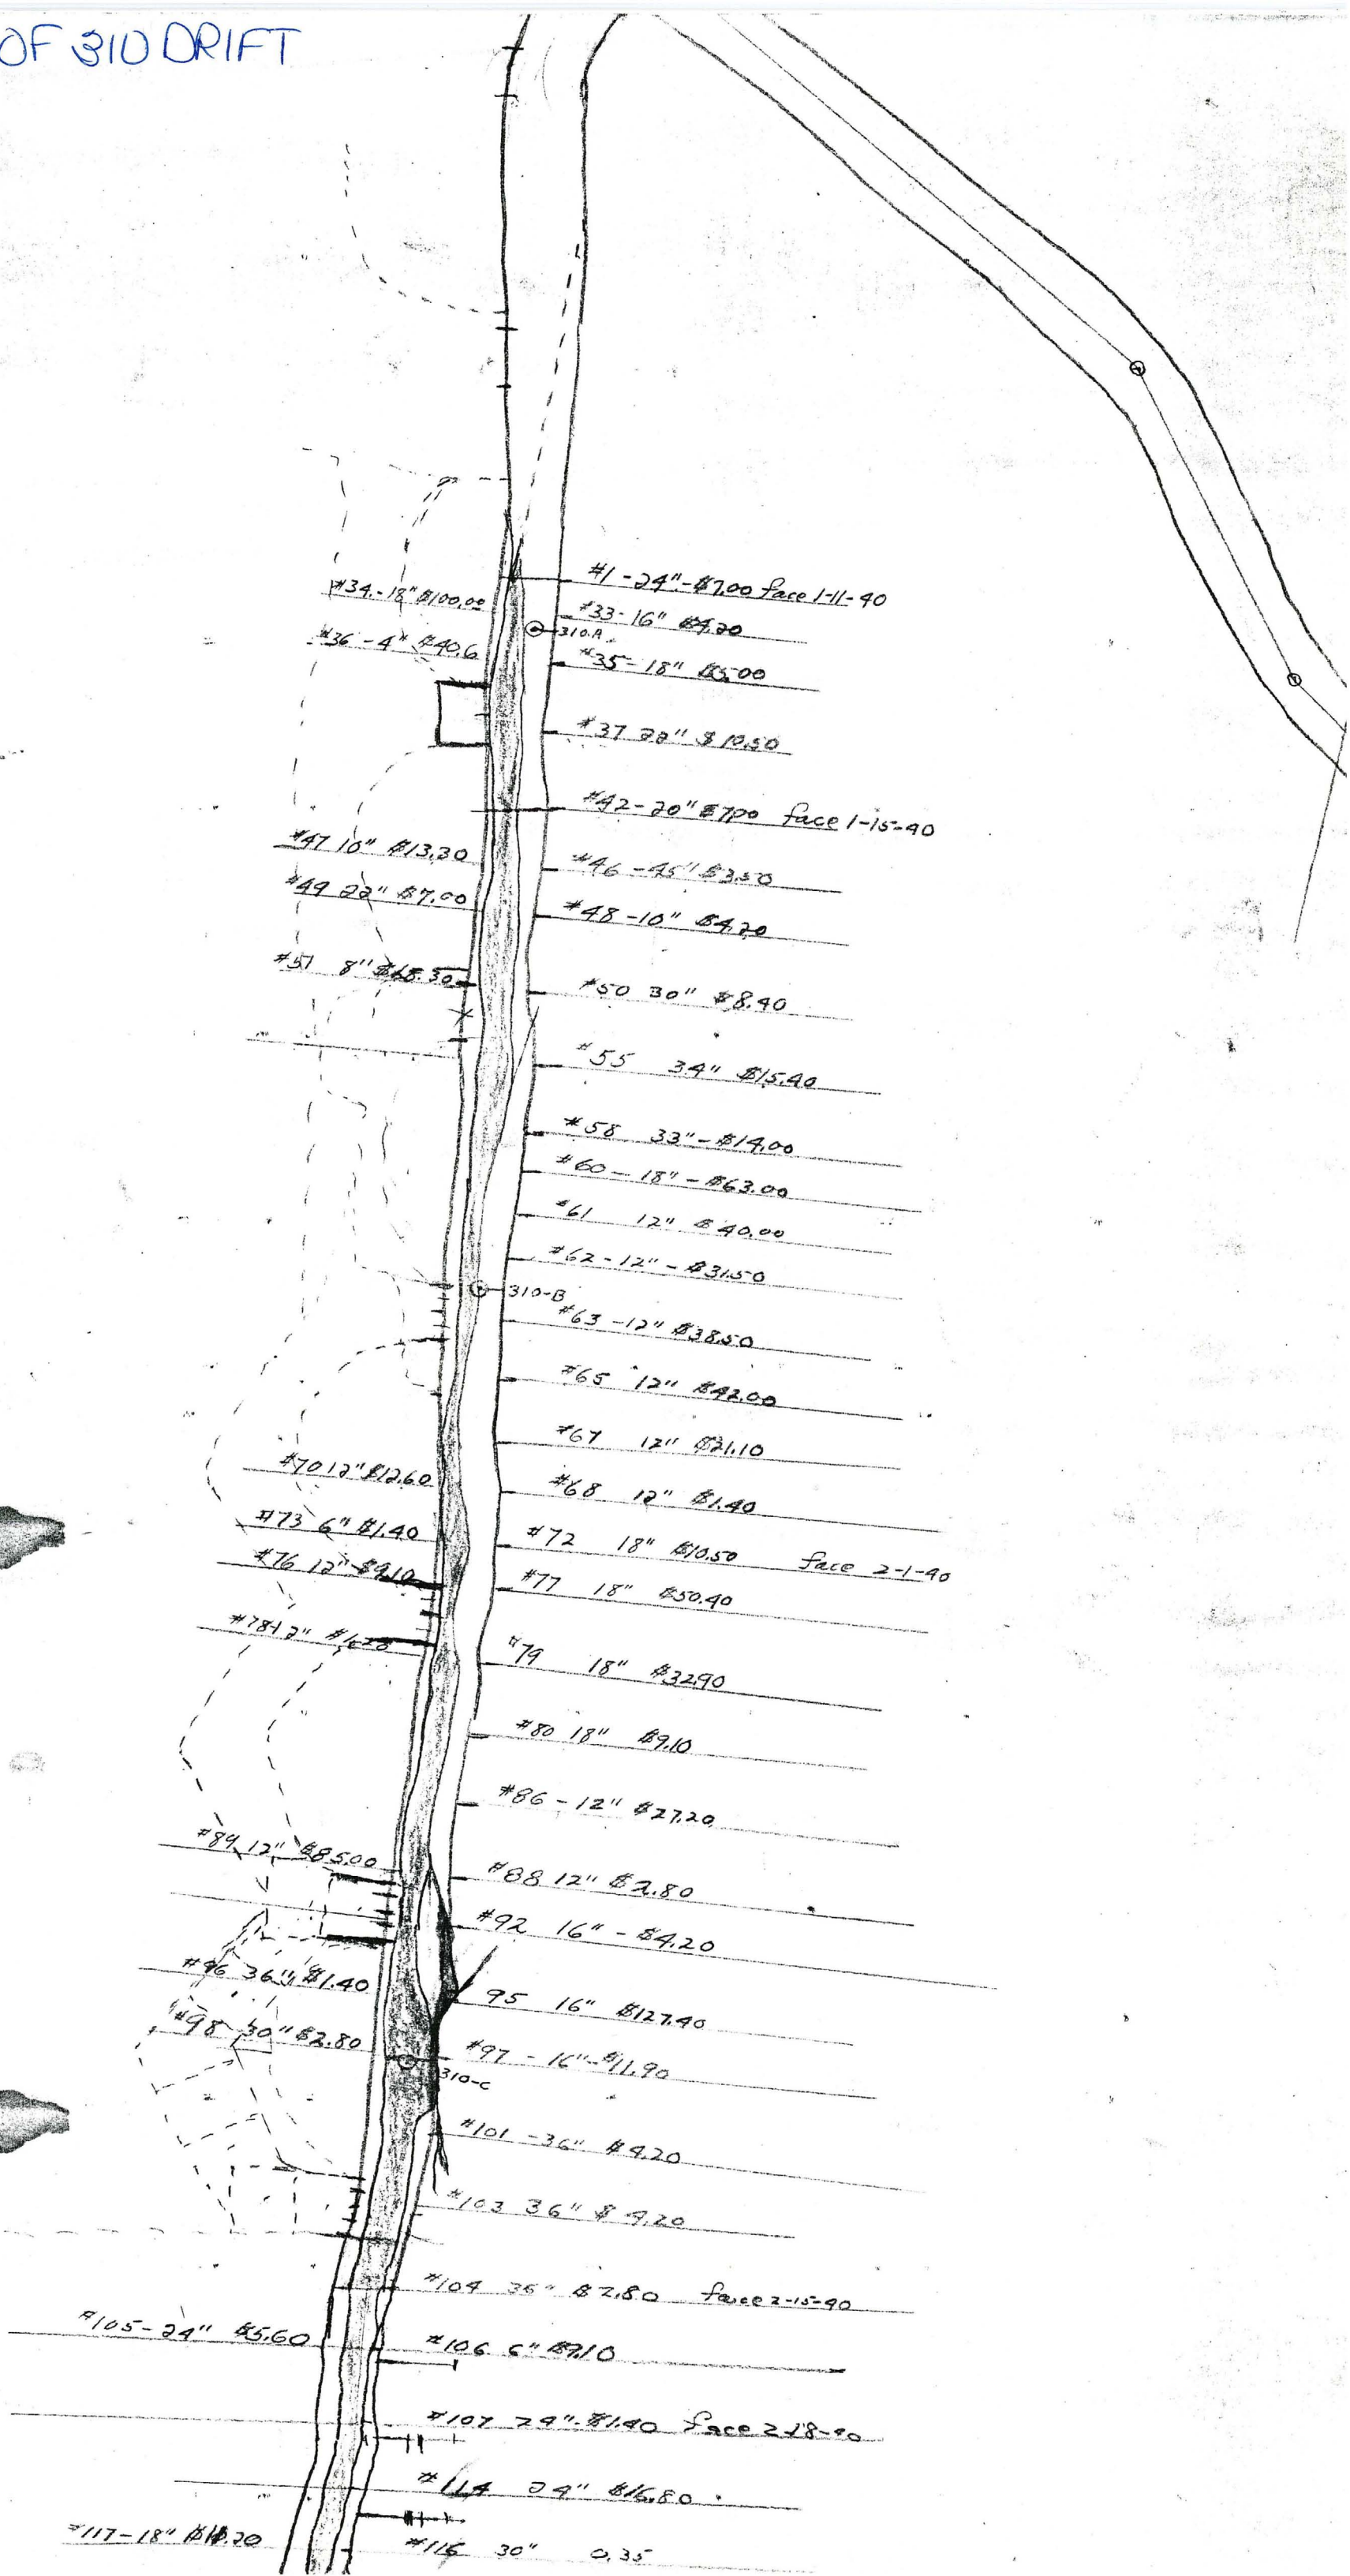 OF 310 DRIFT
#1 - 24" - $7.00 face 1-11-40
#34 - 18" $100.00
#33 - 16" $4.20
310.A
#36 - 4" $40.6
#35 - 18" $5.00
#37 22" $10.50
#42 - 20" $7.00 face 1-15-40
#47 10" $13.30
#46 - 45" $3.50
#49 22" $7.00
#48 - 10" $4.20
#51 8" $68.30
#50 30" $8.40
#55 34" $15.40
#58 33" - $14.00
#60 - 18" - $63.00
#61 12" $40.00
#62 - 12" - $31.50
310-B
#63 - 12" $38.50
#65 12" $42.00
#67 12" $21.10
#70 12" $12.60
#68 12" $1.40
#73 6" $1.40
#72 18" $10.50 face 2-1-40
#76 12" $9.10
#77 18" $50.40
#78 12"
#79 18" $32.90
#80 18" $9.10
#86 - 12" $27.20
#89 12" $85.00
#88 12" $2.80
#92 16" - $4.20
#96 36" $1.40
95 16" $127.40
#98 30" $2.80
#97 - 16" - $11.90
310-C
#101 - 36" $4.20
#103 36" $4.20
#104 36" $2.80 face 2-15-40
#105 - 24" $5.60
#106 6" $9.10
#107 24" - $1.40 face 2-18-40
#114 24" $16.80
#117 - 18"
#116 30" 0.35